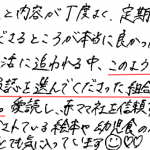 と内容が丁度よく、定期
だるところが本当に良かった
法に追われる中、このよう
選んでくださった担
愛読し、赤ママ社を信頼す
している絵本や幼児食の
ても気に入っています